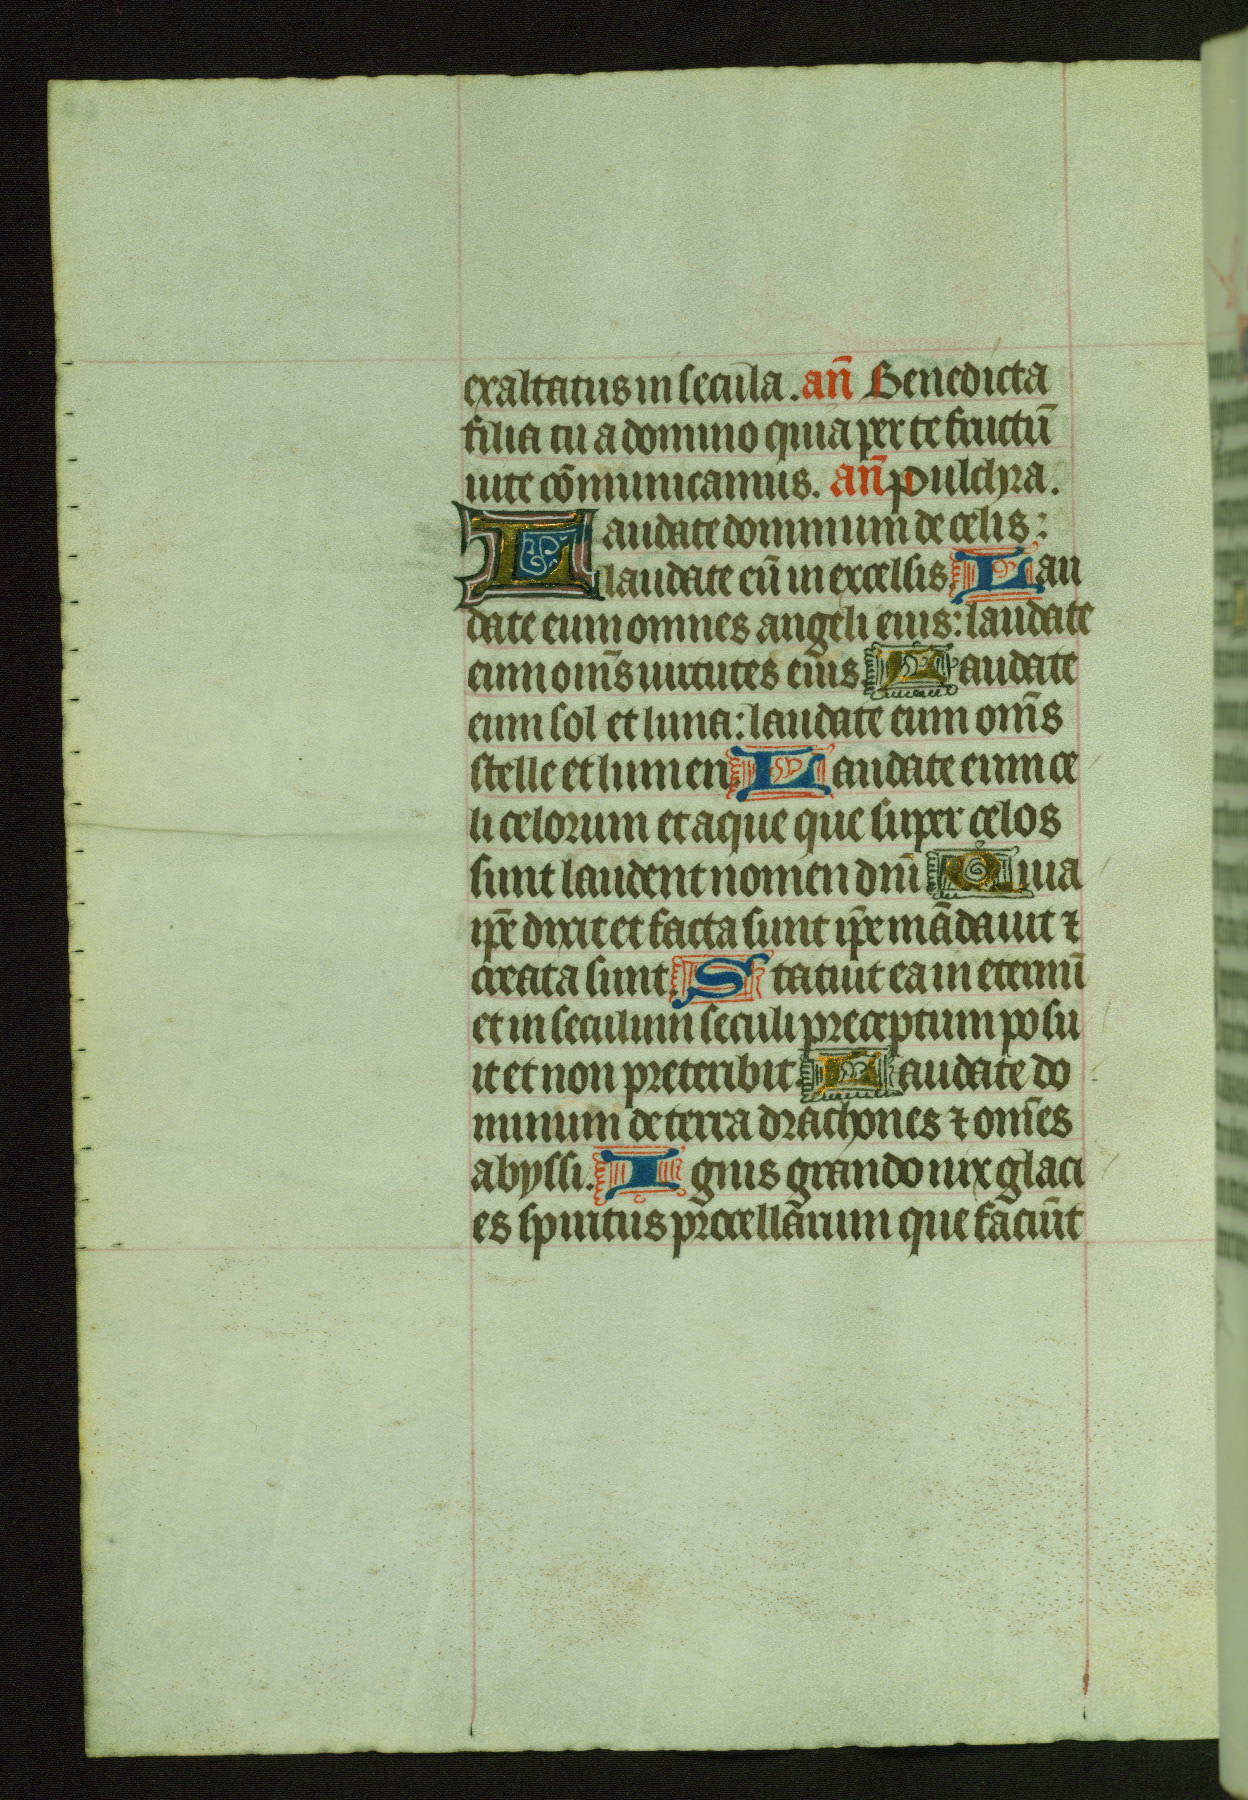 exaltatus in secula. an̄ Benedicta
filia tu a domino quia per te fructū
uite cōmunicamus. an̄ Pulchra.
Laudate dominum de celis:
laudate eū in excelsis. Lau
date eum omnes angeli eius: laudate
eum om̄s uirtutes eius. Laudate
eum sol et luna: laudate eum om̄s
stelle et lumen. Laudate eum ce
li celorum et aque que super celos
sunt laudent nomen dn̄i. Quia
ip̄e dixit et facta sunt ip̄e mādauit ⁊
creata sunt. Statuit ea in eternū
et in seculum seculi preceptum posu
it et non preteribit. Laudate do
minum de terra drachones ⁊ om̄es
abyssi. Ignis grando nix glaci
es spiritus procellarum que faciūt